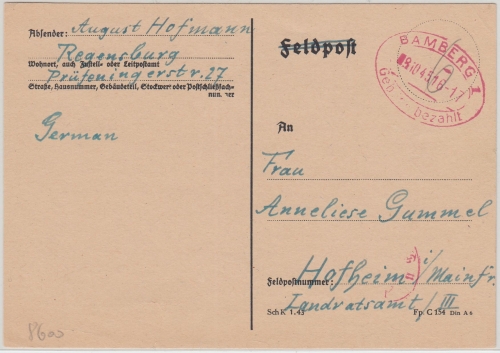 Absender: August Hofmann
Regensburg
Wohnort, auch Zustell- oder Leitpostamt
Prüfeningerstr. 27
Straße, Hausnummer, Gebäudeteil, Stockwerk oder Postschließfach-
nummer
German
8600
Feldpost
BAMBERG 1
Geb. bezahlt
An
Frau
Anneliese Gummel
Feldpostnummer: Hofheim i/Mainfr.
Landratsamt/III
Sch K 1.43
Fp. C 154 Din A 6